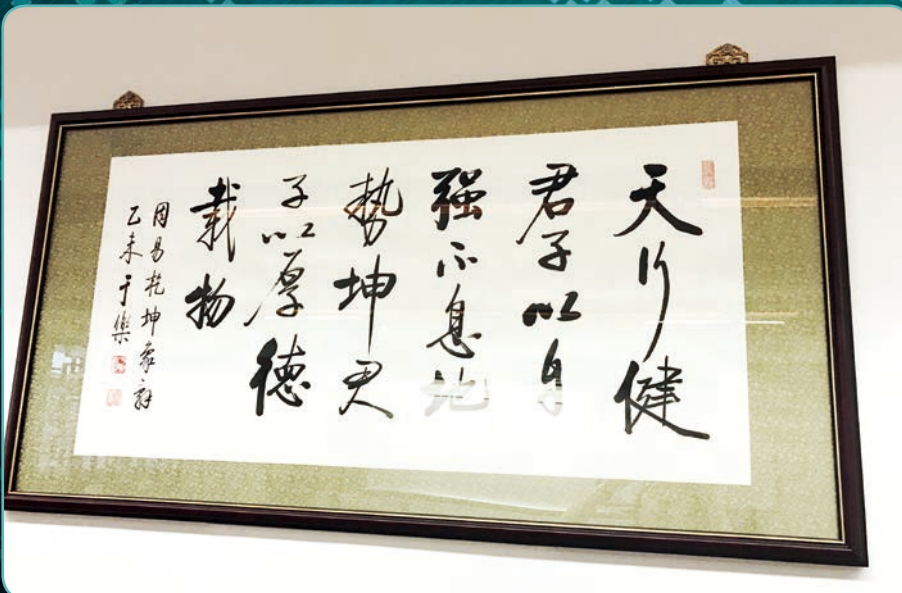 天行健
君子以自
强不息地
勢坤君
子以厚德
載物
周易乾坤象辞
乙未于樂